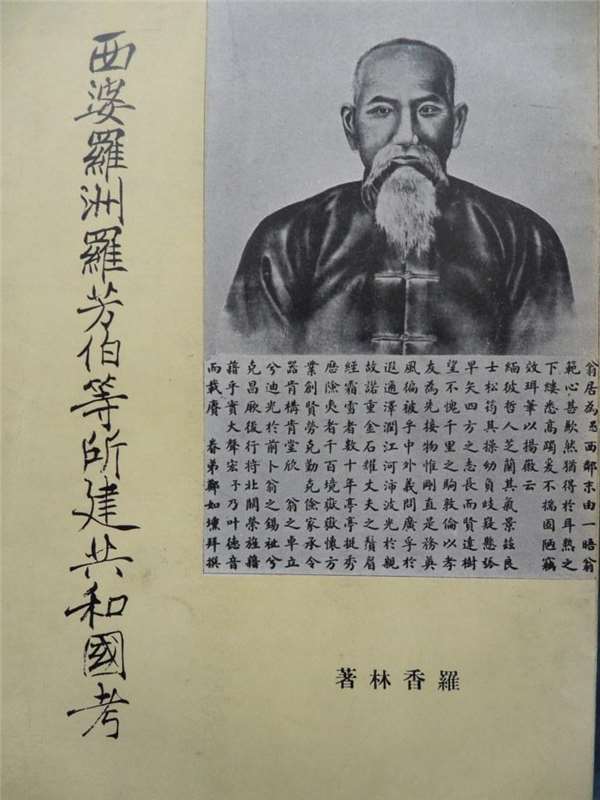 西婆羅洲羅芳伯等所建共和國考
翁居為邑西鄰末由一晤翁
範心喜歉然猶得於耳熟之
下縷悉高躅爰不揣固陋竊
效珥筆以揚徽云
緬彼哲人芝蘭其氣景茲良
士松筠其操幼負岐嶷懸弧
早矢四方之志長而賢達樹
望不愧千里之駒敦倫以孝
友為先接物惟剛直是務英
風偏被乎中外義問廣孚於
遐邇澤潤江河沛波光於親
故諾重金石耀丈夫之鬚眉
經霜雪者數十年亭亭挺秀
歷險夷者千百境嶽嶽懷方
業創賢勞克勤克儉家承令
器肯構肯堂欣 翁之卓立
兮迪光於前卜翁之錫祉兮
克昌厥後行將北闕榮旌籍
藉乎實大聲宏予乃叶德音
而載賡 春弟鄭如壎拜撰
羅香林著